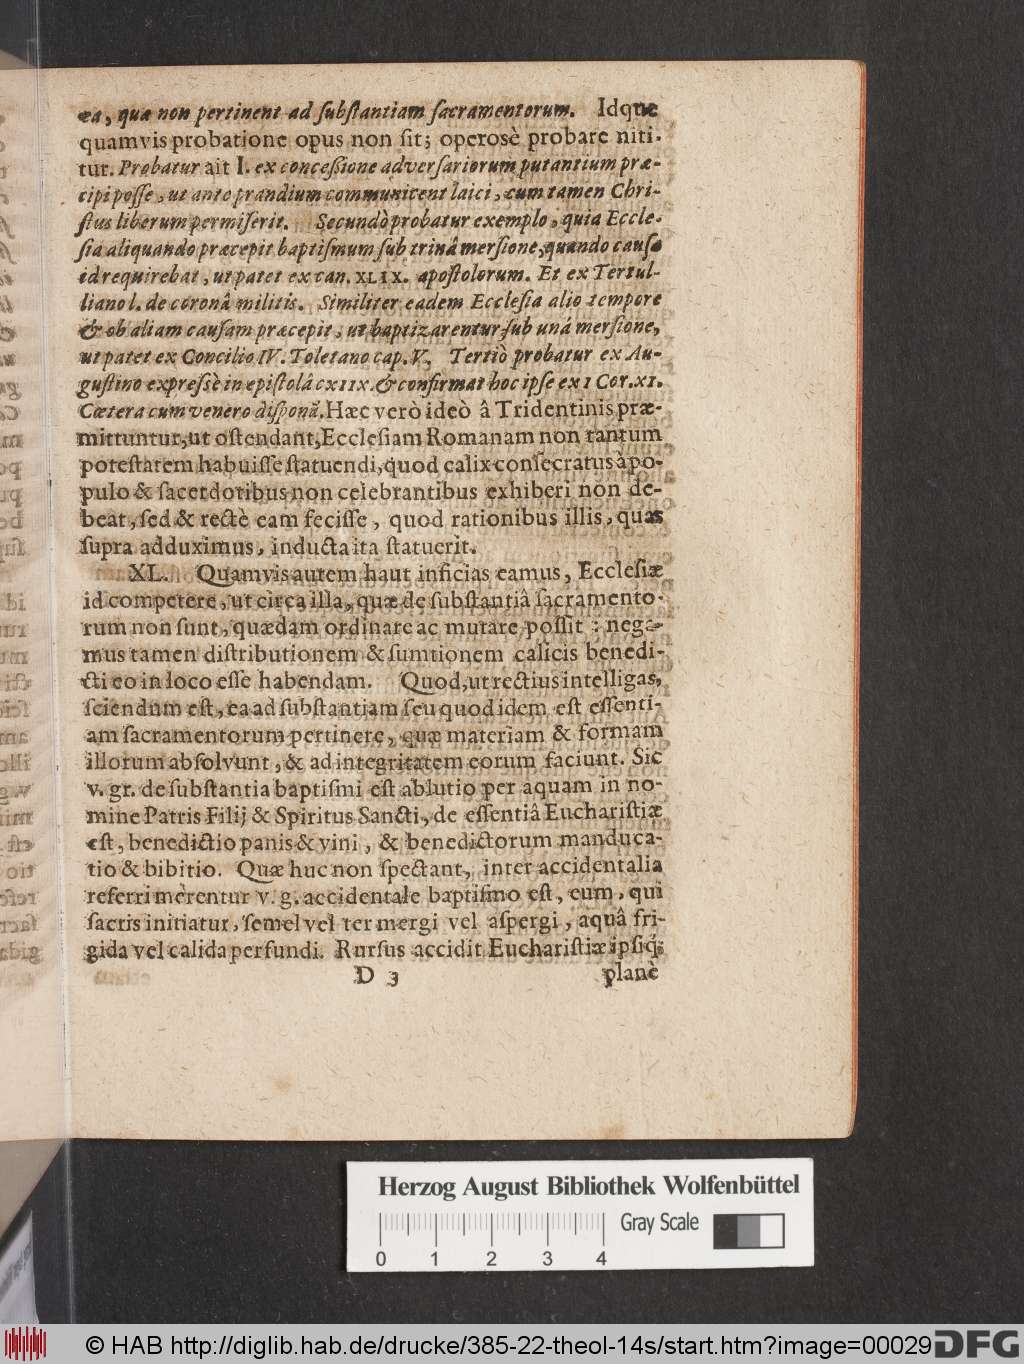 ea, quæ non pertinent ad ſubſtantiam ſacramentorum. Idque
quamvis probatione opus non ſit; operosè probare niti-
tur. Probatur ait I. ex conceßione adverſariorum putantium præ-
cipi poſſe, ut ante prandium communicent laici, cum tamen Chri-
ſtus liberum permiſerit. Secundò probatur exemplo, quia Eccle-
ſia aliquando præcepit baptiſmum ſub trinâ merſione, quando cauſa
id requirebat, ut patet ex can. XLIX. apoſtolorum. Et ex Tertul-
liano l. de coronâ militis. Similiter eadem Eccleſia alio tempore
& ob aliam cauſam præcepit, ut baptizarentur ſub unâ merſione,
ut patet ex Concilio IV. Toletano cap. V. Tertiò probatur ex Au-
guſtino expreſsè in epiſtolâ CXIIX. & confirmat hoc ipſe ex 1 Cor. XI.
Cætera cum venero diſponā. Hæc verò ideò â Tridentinis præ-
mittuntur, ut oſtendant, Eccleſiam Romanam non tantum
poteſtatem habuiſſe ſtatuendi, quod calix conſecratus à po-
pulo & ſacerdotibus non celebrantibus exhiberi non de-
beat, ſed & rectè eam feciſſe, quod rationibus illis, quas
ſupra adduximus, inducta ita ſtatuerit.
XL. Quamvis autem haut inficias eamus, Eccleſiæ
id competere, ut circa illa, quæ de ſubſtantiâ ſacramento-
rum non ſunt, quædam ordinare ac mutare poſſit: nega-
mus tamen diſtributionem & ſumtionem calicis benedi-
cti eo in loco eſſe habendam. Quod, ut rectius intelligas,
ſciendum eſt, ea ad ſubſtantiam ſeu quod idem eſt eſſenti-
am ſacramentorum pertinere, quæ materiam & formam
illorum abſolvunt, & ad integritatem eorum faciunt. Sic
v. gr. de ſubſtantia baptiſmi eſt ablutio per aquam in no-
mine Patris Filij & Spiritus Sancti, de eſſentiâ Euchariſtiæ
eſt, benedictio panis & vini, & benedictorum manduca-
tio & bibitio. Quæ huc non ſpectant, inter accidentalia
referri merentur v. g. accidentale baptiſmo eſt, eum, qui
ſacris initiatur, ſemel vel ter mergi vel aſpergi, aquâ fri-
gida vel calida perfundi. Rurſus accidit Euchariſtiæ ipſiq;
D 3 planè
Herzog August Bibliothek Wolfenbüttel
Gray Scale
0 1 2 3 4
© HAB http://diglib.hab.de/drucke/385-22-theol-14s/start.htm?image=00029
DFG